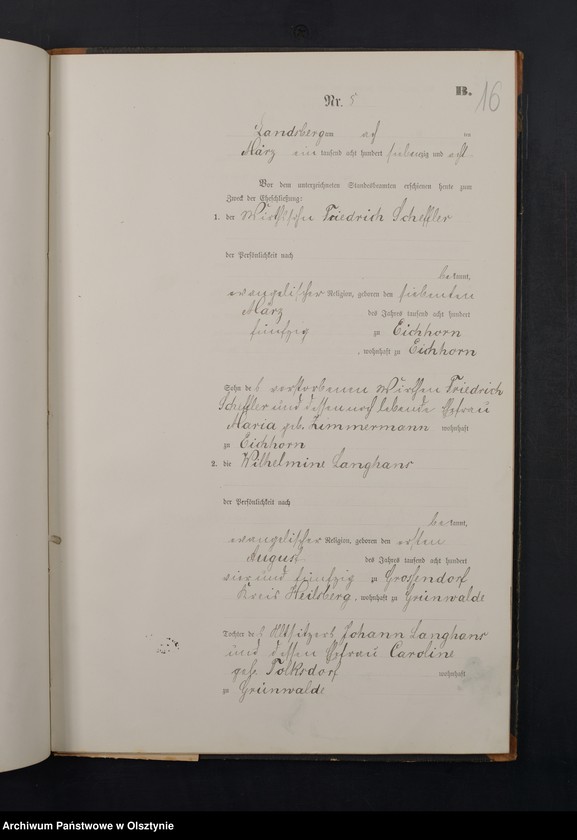 B. 16
Nr. 5
Landsberg am
März ein tausend acht hundert siebenzig und acht
Vor dem unterzeichneten Standesbeamten erschienen heute zum
Zweck der Eheschließung:
1. der Wirthssohn Friedrich Scheffler
der Persönlichkeit nach
bekannt,
evangelischer Religion, geboren den siebenten
März des Jahres tausend acht hundert
fünfzig zu Eichhorn
, wohnhaft zu Eichhorn
Sohn des verstorbenen Wirthen Friedrich
Scheffler und dessen noch lebende Ehefrau
Maria geb. Zimmermann wohnhaft
zu Eichhorn
2. die Wilhelmine Langhans
der Persönlichkeit nach
bekannt,
evangelischer Religion, geboren den ersten
August des Jahres tausend acht hundert
vier und fünfzig zu Grosendorf
Kreis Heilsberg, wohnhaft zu Grünwalde
Tochter des Altsitzers Johann Langhans
und dessen Ehefrau Caroline
geb. Tolksdorf wohnhaft
zu Grünwalde
Archiwum Państwowe w Olsztynie